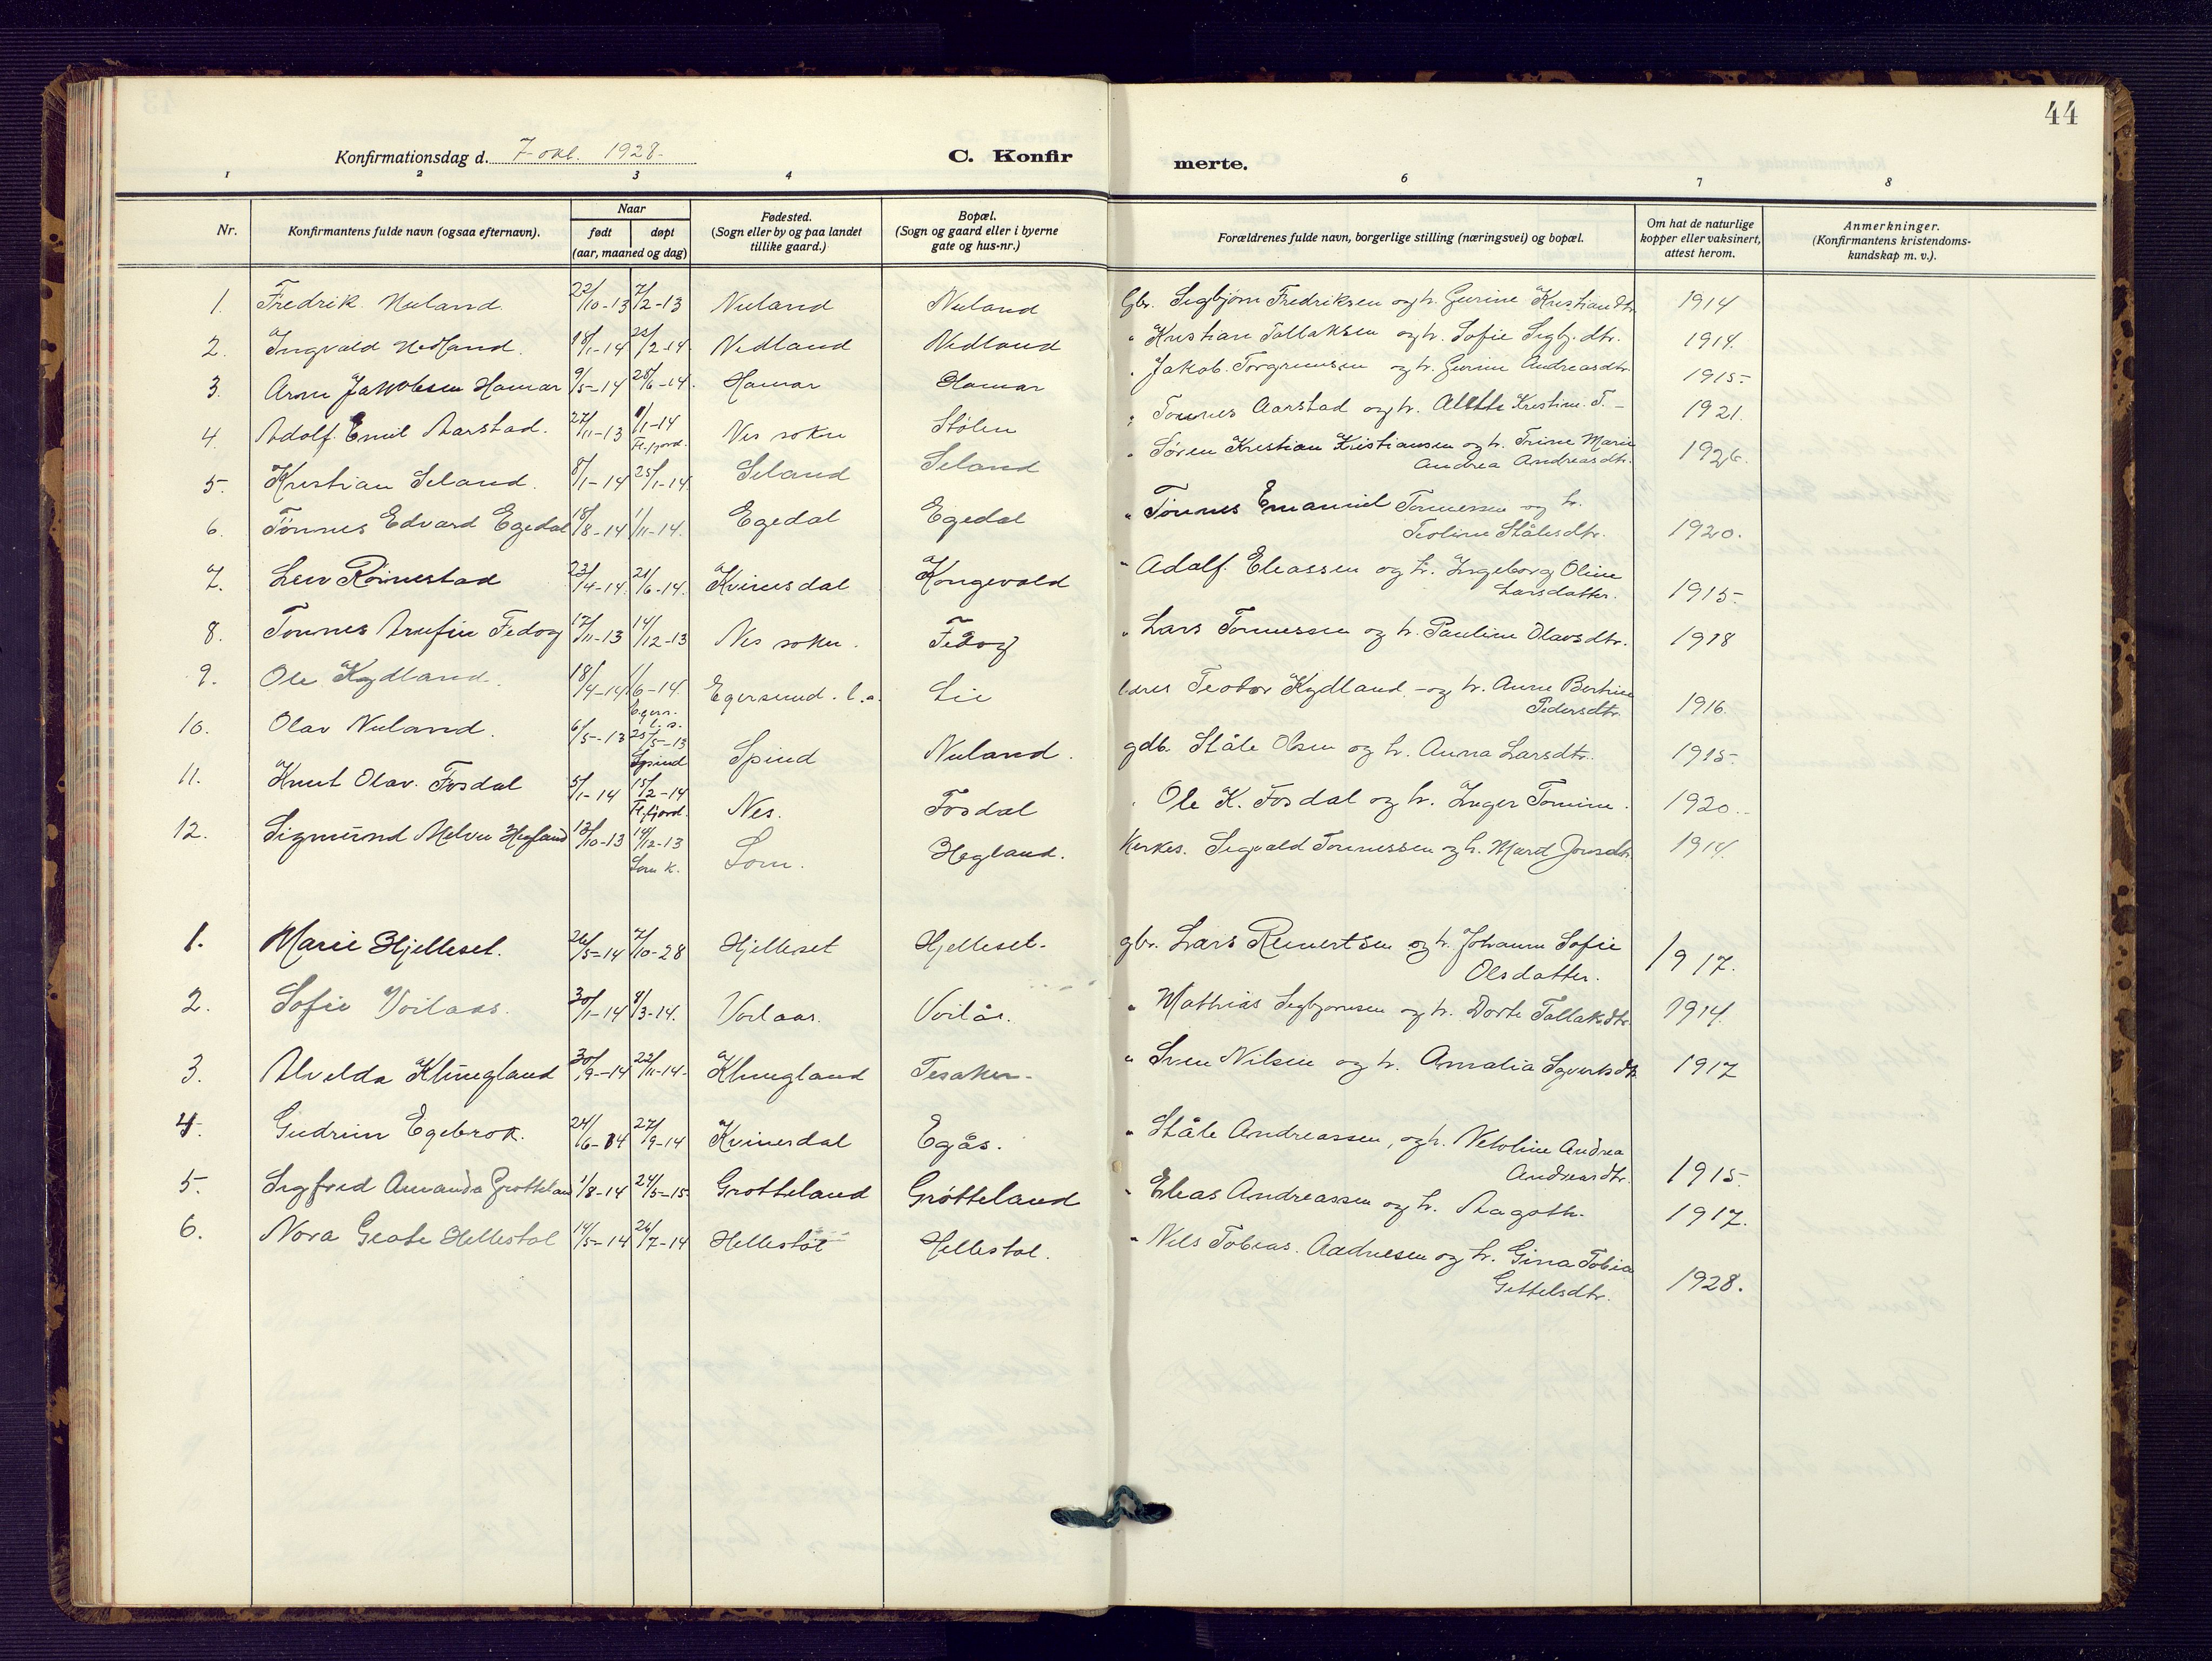 44
Konfirmationsdag d. 7-okt. 1928.
C. Konfirmerte.
1 2 3 4 6 7 8
Nr.
Konfirmantens fulde navn (ogsaa efternavn).
Naar
født døpt
(aar, maaned og dag)
Fødested.
(Sogn eller by og paa landet
tillike gaard.)
Bopæl.
(Sogn og gaard eller i byerne
gate og hus-nr.)
Forældrenes fulde navn, borgerlige stilling (næringsvei) og bopæl.
Om hat de naturlige
kopper eller vaksinert,
attest herom.
Anmerkninger.
(Konfirmantens kristendoms-
kundskap m. v.).
1. Fredrik Nuland. 22/10-13 7/2-13 Nuland Nuland Gbr. Sigbjørn Fredriksen og h. Gurine Kristiansdtr. 1914
2. Ingvald Nedland. 18/1-14 22/2-14. Nedland Nedland " Kristian Tallaksen og h. Sofie Sigbj.dtr. 1914.
3. Arne Jakobsen Hamar 9/5-14 28/6-14. Hamar Hamar " Jakob Torgrimsen og h. Gurine Andreasdtr. 1915.
4. Adolf Emil Aarstad. 27/11-13 1/1-14 Nes sokn Stølen " Tønnes Aarstad og h. Alette Kristine T. - 1921.
Fl.fjord.
5. Kristian Seland. 8/1-14 25/1-14 Seland Seland " Søren Kristian Kristiansen og h. Trine Marie 1926.
Andrea Andreasdtr.
6. Tønnes Edvard Egedal 18/8-14 1/11-14. Egedal Egedal " Tønnes Emanuel Tønnessen og h.
Teoline Ståledtr. 1920.
7. Leiv Røinestad 23/4-14. 21/6-14. Kvinesdal Kongevold " Adolf Eleassen og h. Ingeborg Oline
Larsdatter. 1915.
8. Tønnes Arnfin Fedog 17/11-13 14/12-13 Nes sokn. Fedog " Lars Tønnessen og h. Pauline Olavsdtr. 1918
9. Ole Kydland. 18/4-14 1/6-14. Egersund. l.s. Lie Teodor Kydland - og h. Anne Bertine
Egers. l.s. Pedersdtr. 1916.
10. Olav Nuland. 6/5-13 25/5-13 Spind Nuland. gdb. Ståle Olsen og h. Anna Larsdtr. 1915.
Spind
11. Knut Olav. Fosdal 5/1-14 15/2-14 Nes. Fosdal " Ole K. Fosdal og h. Inger Tomine. 1920.
Fl.fjord.
12. Sigmund Melvin Hegland 13/10-13 14/12-13 Lom. Hegland. Kirkes. Sigvald Tønnessen og h. Marit Jonsdtr. 1914.
Lom k.
1. Marie Hjelleset. 26/5-14 7/10-28 Hjelleset Hjelleset. gbr. Lars Reinertsen og h. Johanne Sofie
Olsdatter. 1917.
2. Sofie Voilaas. 30/1-14 8/3-14. Voilaas. Voilås. " Mathias Sigbjørnsen og h. Dorte Tallaksdtr. 1914.
3. Alvelda Klungland 30/9-14 22/11-14. Klungland Tesaker. " Sven Nilsen og h. Amalia Syvertsdtr. 1917
4. Gudrun Egebrok. 24/6-14 27/9-14 Kvinesdal Egås. " Ståle Andreassen, og h. Netoline Andrea
Andreasdtr. 1915.
5. Sigfrid Amanda Grotteland 1/8-14 24/5-15 Grotteland Grøtteland " Eleas Andreassen og h. Aagoth. 1917.
6. Nora Geate Hellestøl 14/5-14 26/7-14 Hellestøl Hellestøl. " Nils Tobias. Aadnesen og h. Gina Tobia
Gettelsdtr. 1928.